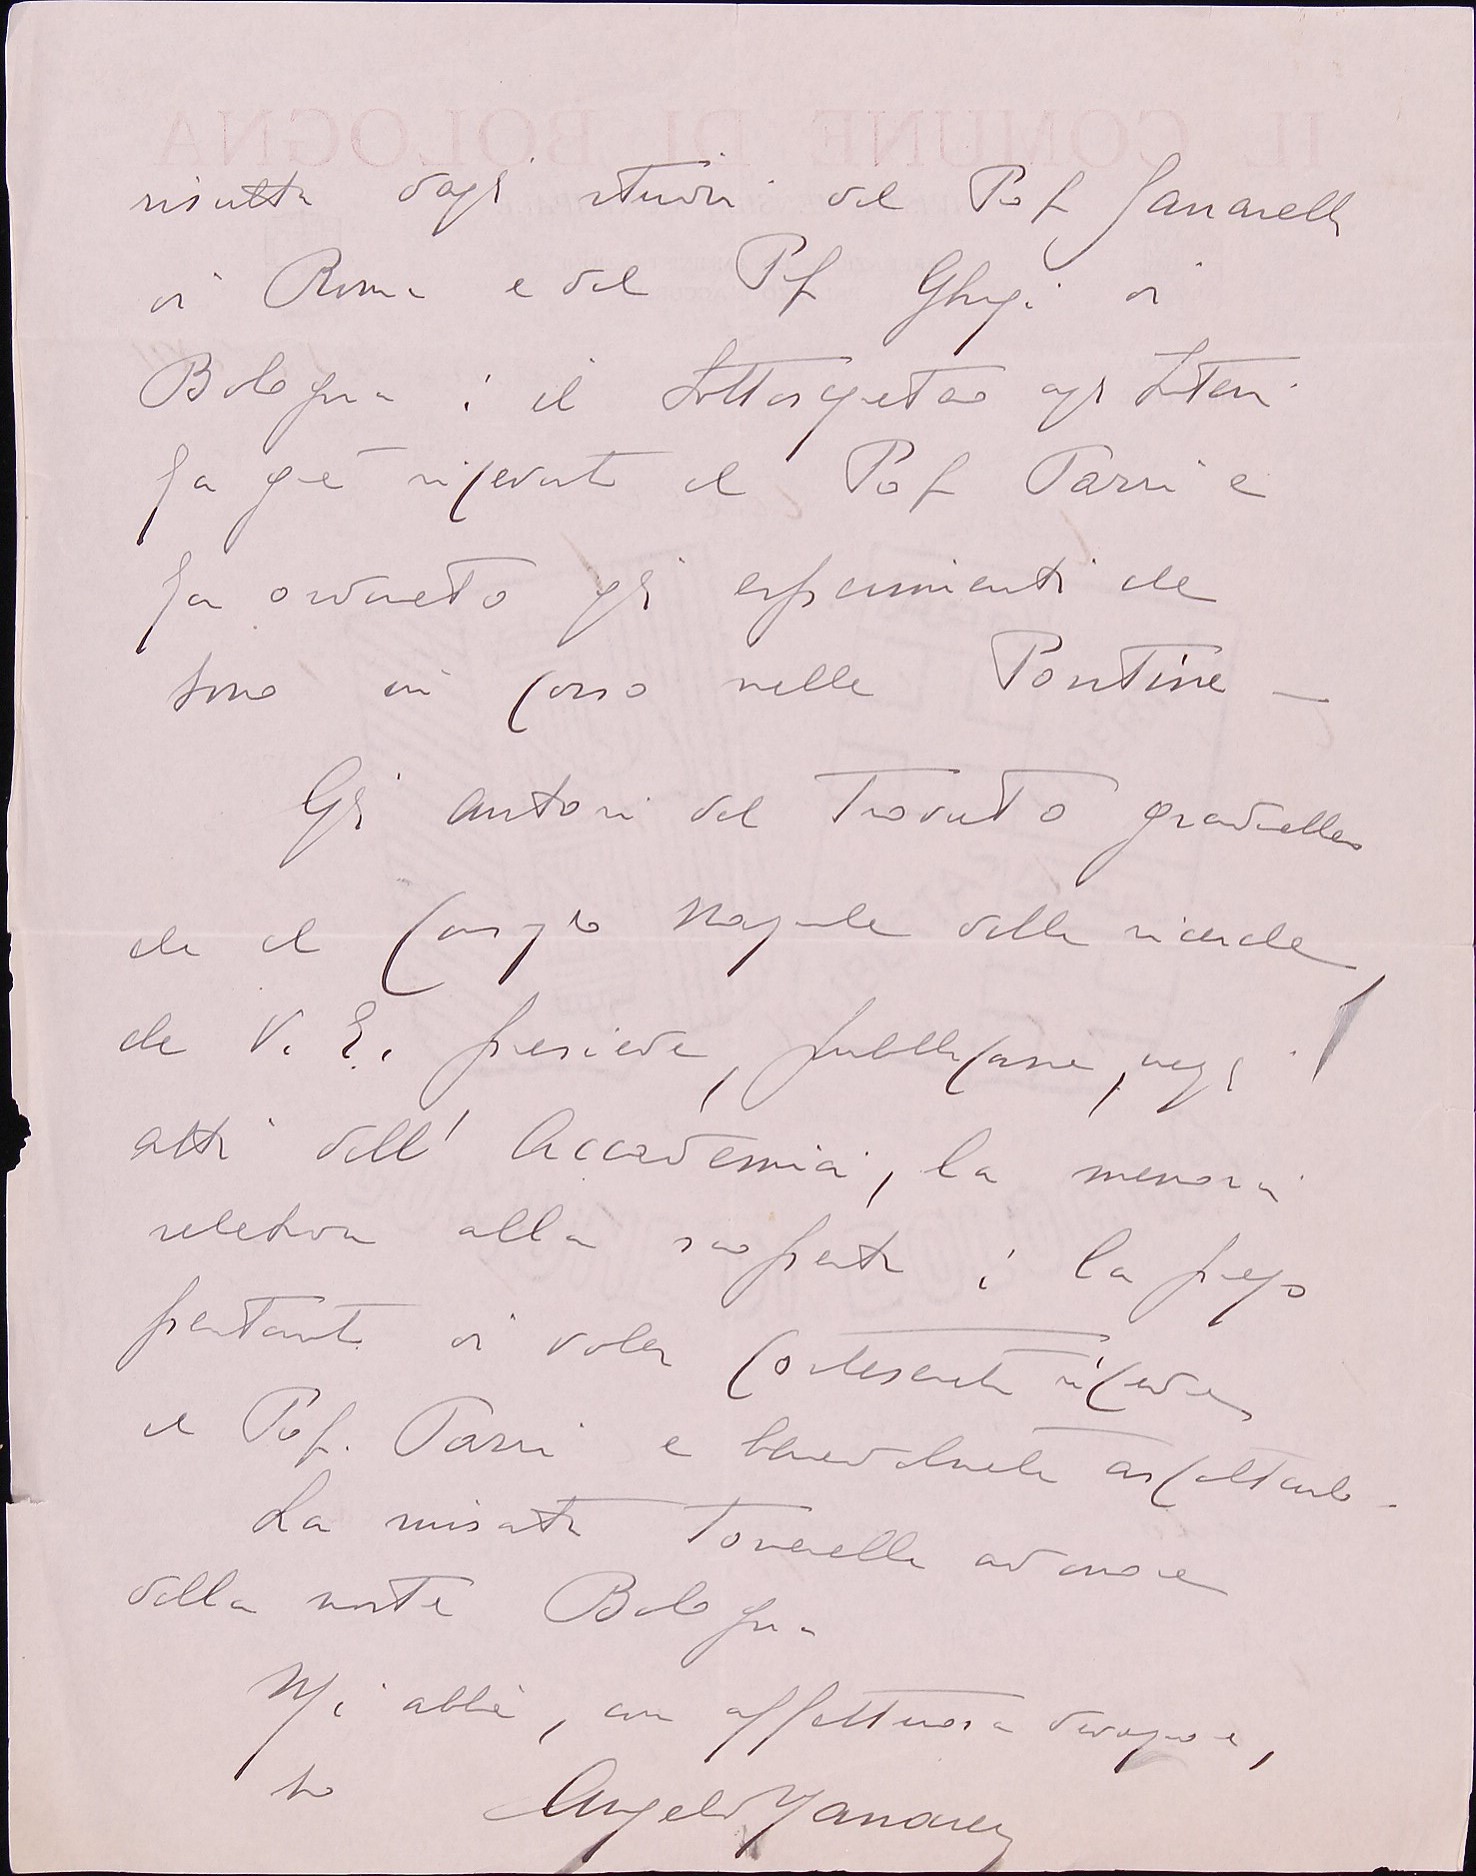 risulta dagli studi del Prof Sanarelli
di Roma e del Prof Ghigi di
Bologna; il Sottosegretario agli Interni
ha già ricevuto il Prof Parri e
ha ordinato gli esperimenti che
sono in corso nelle Pontine —
Gli autori del Trovato gradirebbero
che il Consiglio Nazionale delle ricerche,
che V. E. presiede, pubblicasse, negli
atti dell' Accademia, la memoria
relativa alla scoperta; la prego
pertanto di voler cortesemente ricevere
il Prof. Parri e benevolmente ascoltarlo.
La missiva tornerebbe ad onore
della nostra Bologna
Mi abbia, con affettuosa devozione,
suo Angelo Manaresi
IL COMUNE DI BOLOGNA